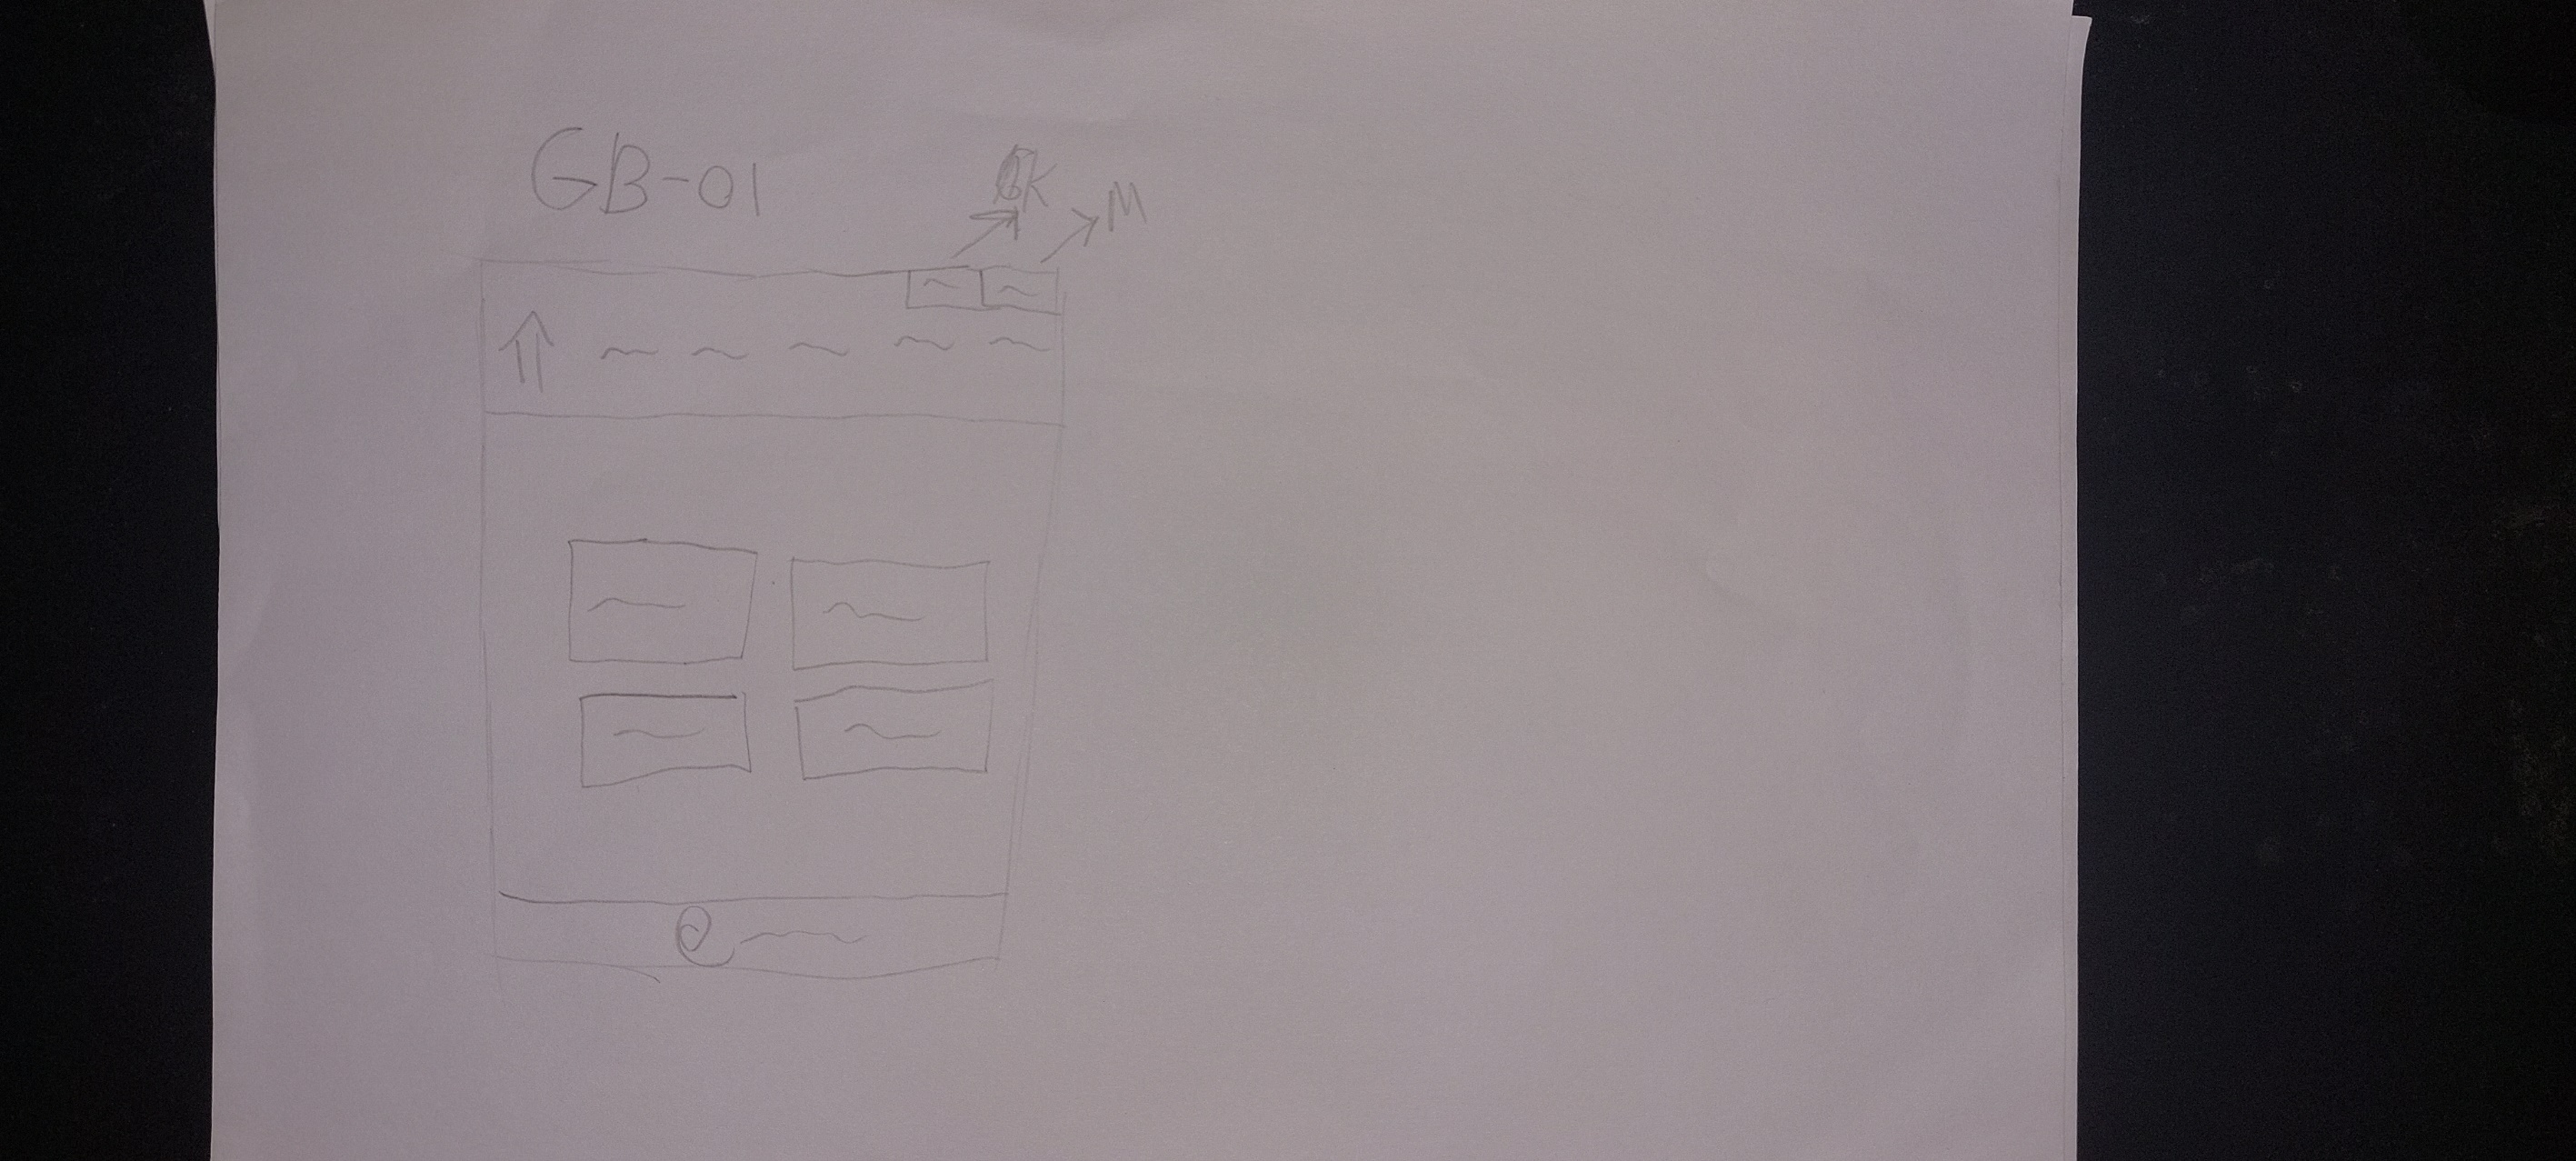 GB-01
K
M